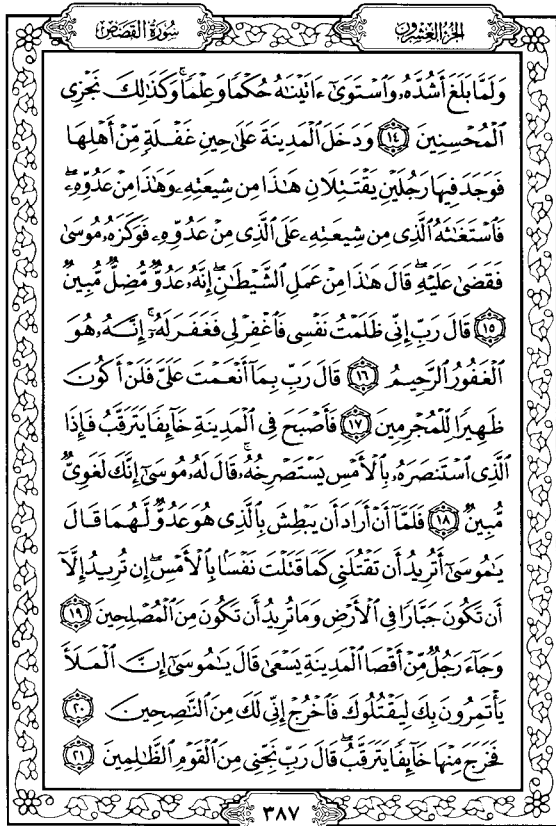 الجزء العشرون
سورة القصص
وَلَمَّا بَلَغَ أَشُدَّهُۥ وَٱسْتَوَىٰٓ ءَاتَيْنَٰهُ حُكْمًا وَعِلْمًاۚ وَكَذَٰلِكَ نَجْزِى
ٱلْمُحْسِنِينَ ١٤ وَدَخَلَ ٱلْمَدِينَةَ عَلَىٰ حِينِ غَفْلَةٍ مِّنْ أَهْلِهَا
فَوَجَدَ فِيهَا رَجُلَيْنِ يَقْتَتِلَانِ هَٰذَا مِن شِيعَتِهِۦ وَهَٰذَا مِنْ عَدُوِّهِۦۖ
فَٱسْتَغَٰثَهُ ٱلَّذِى مِن شِيعَتِهِۦ عَلَى ٱلَّذِى مِنْ عَدُوِّهِۦ فَوَكَزَهُۥ مُوسَىٰ
فَقَضَىٰ عَلَيْهِۖ قَالَ هَٰذَا مِنْ عَمَلِ ٱلشَّيْطَٰنِۖ إِنَّهُۥ عَدُوٌّ مُّضِلٌّ مُّبِينٌ
١٥ قَالَ رَبِّ إِنِّى ظَلَمْتُ نَفْسِى فَٱغْفِرْ لِى فَغَفَرَ لَهُۥٓۚ إِنَّهُۥ هُوَ
ٱلْغَفُورُ ٱلرَّحِيمُ ١٦ قَالَ رَبِّ بِمَآ أَنْعَمْتَ عَلَىَّ فَلَنْ أَكُونَ
ظَهِيرًا لِّلْمُجْرِمِينَ ١٧ فَأَصْبَحَ فِى ٱلْمَدِينَةِ خَآئِفًا يَتَرَقَّبُ فَإِذَا
ٱلَّذِى ٱسْتَنصَرَهُۥ بِٱلْأَمْسِ يَسْتَصْرِخُهُۥۚ قَالَ لَهُۥ مُوسَىٰٓ إِنَّكَ لَغَوِىٌّ
مُّبِينٌ ١٨ فَلَمَّآ أَنْ أَرَادَ أَن يَبْطِشَ بِٱلَّذِى هُوَ عَدُوٌّ لَّهُمَا قَالَ
يَٰمُوسَىٰٓ أَتُرِيدُ أَن تَقْتُلَنِى كَمَا قَتَلْتَ نَفْسًۢا بِٱلْأَمْسِۖ إِن تُرِيدُ إِلَّآ
أَن تَكُونَ جَبَّارًا فِى ٱلْأَرْضِ وَمَا تُرِيدُ أَن تَكُونَ مِنَ ٱلْمُصْلِحِينَ ١٩
وَجَآءَ رَجُلٌ مِّنْ أَقْصَا ٱلْمَدِينَةِ يَسْعَىٰ قَالَ يَٰمُوسَىٰٓ إِنَّ ٱلْمَلَأَ
يَأْتَمِرُونَ بِكَ لِيَقْتُلُوكَ فَٱخْرُجْ إِنِّى لَكَ مِنَ ٱلنَّٰصِحِينَ ٢٠
فَخَرَجَ مِنْهَا خَآئِفًا يَتَرَقَّبُۖ قَالَ رَبِّ نَجِّنِى مِنَ ٱلْقَوْمِ ٱلظَّٰلِمِينَ ٢١
٣٨٧